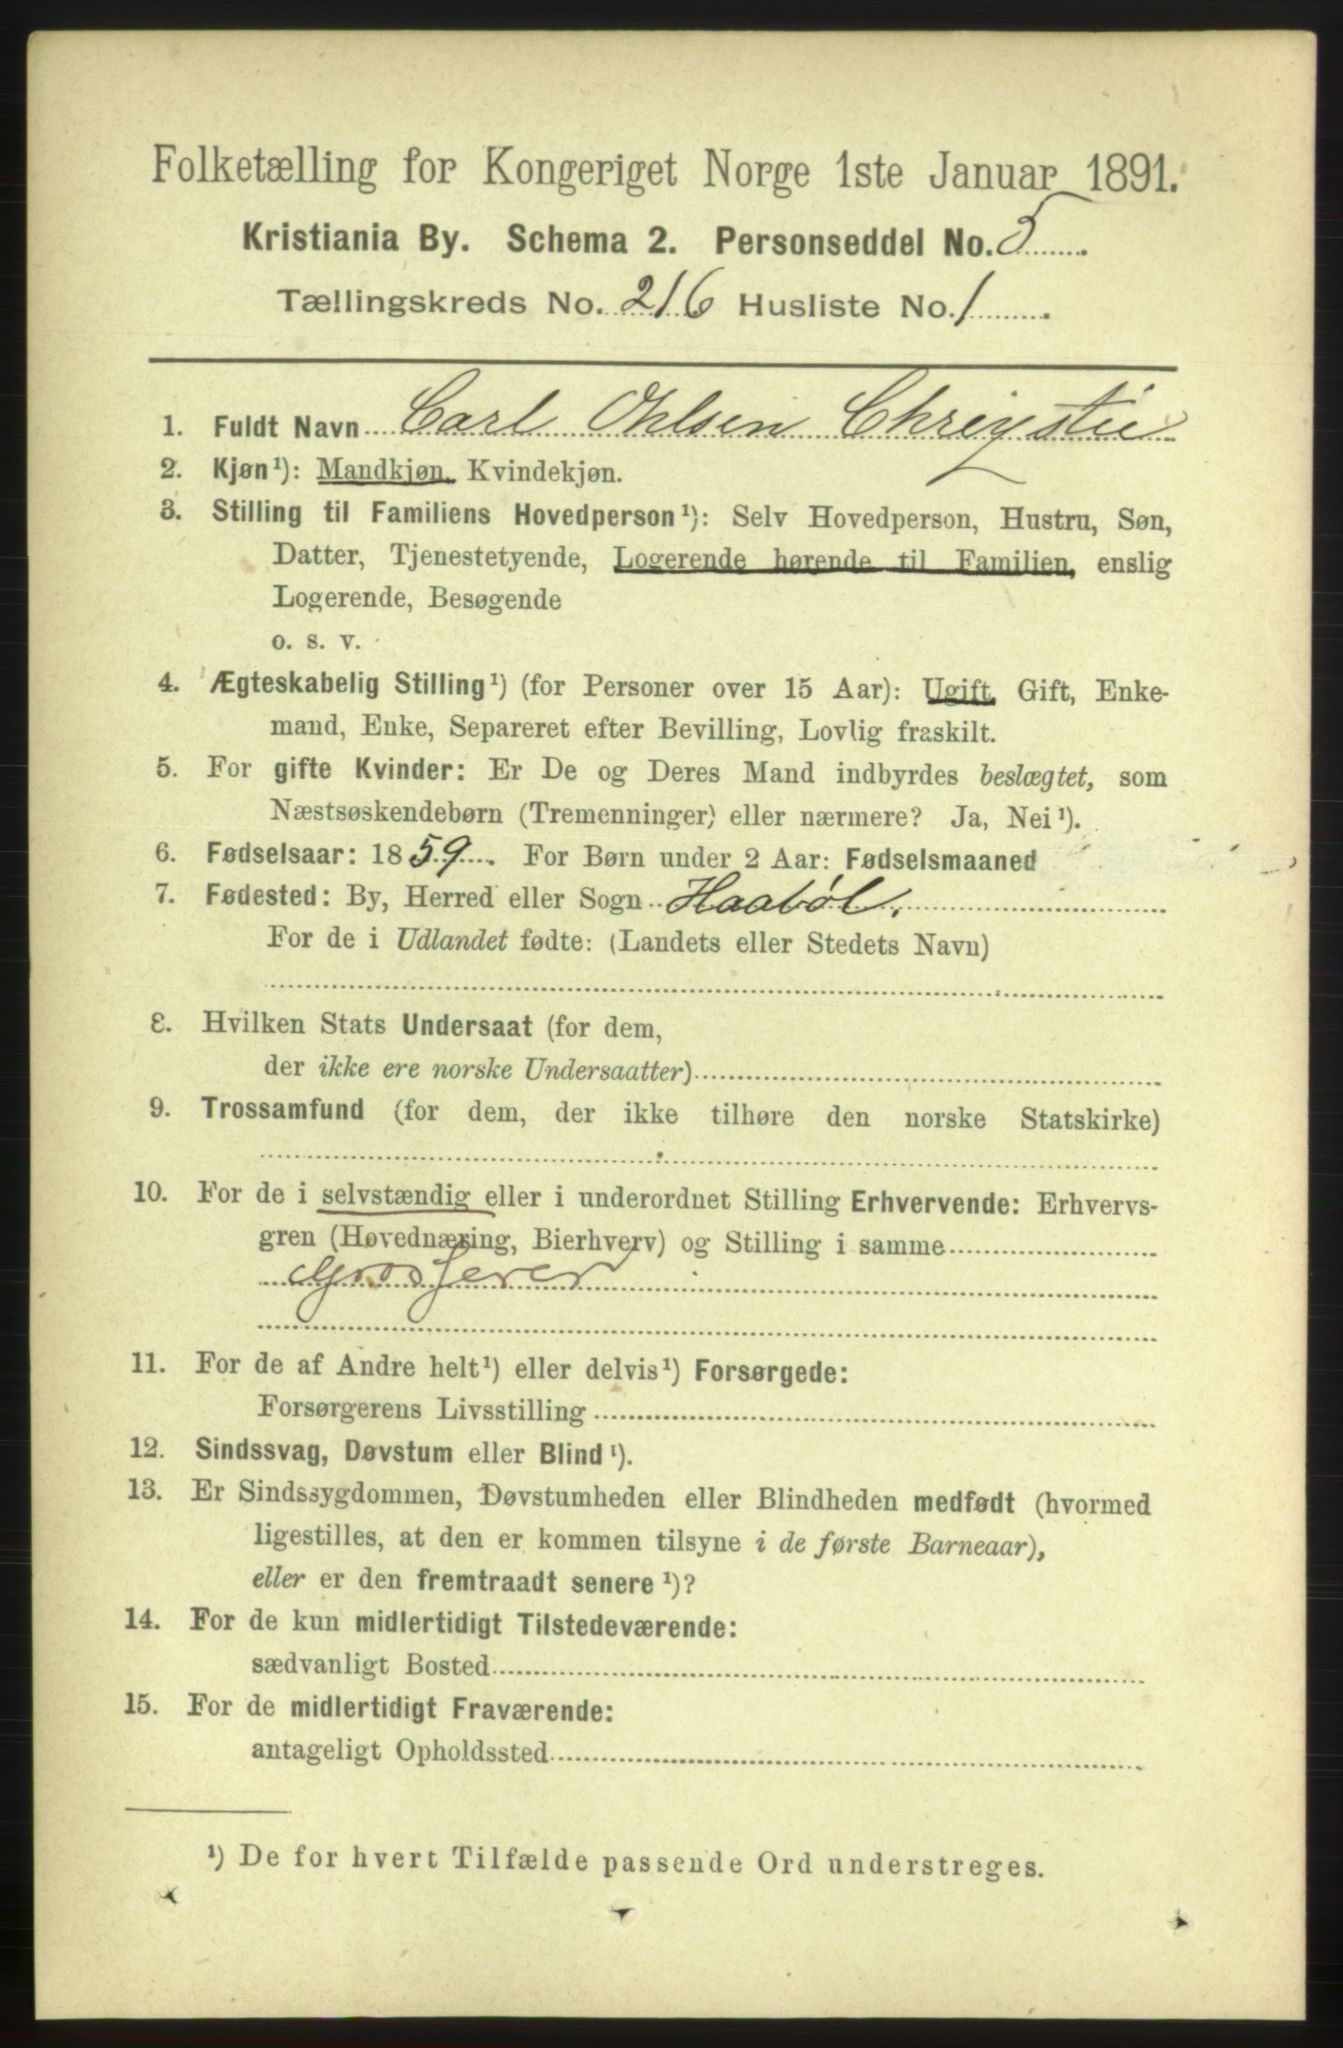 Folketælling for Kongeriget Norge 1ste Januar 1891.
Kristiania By. Schema 2. Personseddel No. 5
Tællingskreds No. 216 Husliste No. 1
1. Fuldt Navn Carl Ohlsen Chreystie
2. Kjøn¹): Mandkjøn, Kvindekjøn.
3. Stilling til Familiens Hovedperson¹): Selv Hovedperson, Hustru, Søn,
Datter, Tjenestetyende, Logerende hørende til Familien, enslig
Logerende, Besøgende
o. s. v.
4. Ægteskabelig Stilling¹) (for Personer over 15 Aar): Ugift, Gift, Enke-
mand, Enke, Separeret efter Bevilling, Lovlig fraskilt.
5. For gifte Kvinder: Er De og Deres Mand indbyrdes beslægtet, som
Næstsøskendebørn (Tremenninger) eller nærmere? Ja, Nei¹).
6. Fødselsaar: 1859. For Børn under 2 Aar: Fødselsmaaned
7. Fødested: By, Herred eller Sogn Haabøl.
For de i Udlandet fødte: (Landets eller Stedets Navn)
8. Hvilken Stats Undersaat (for dem,
der ikke ere norske Undersaatter)
9. Trossamfund (for dem, der ikke tilhøre den norske Statskirke)
10. For de i selvstændig eller i underordnet Stilling Erhvervende: Erhvervs-
gren (Hovednæring, Bierhverv) og Stilling i samme
Grosserer
11. For de af Andre helt¹) eller delvis¹) Forsørgede:
Forsørgerens Livsstilling
12. Sindssvag, Døvstum eller Blind¹).
13. Er Sindssygdommen, Døvstumheden eller Blindheden medfødt (hvormed
ligestilles, at den er kommen tilsyne i de første Barneaar),
eller er den fremtraadt senere¹)?
14. For de kun midlertidigt Tilstedeværende:
sædvanligt Bosted
15. For de midlertidigt Fraværende:
antageligt Opholdssted
¹) De for hvert Tilfælde passende Ord understreges.